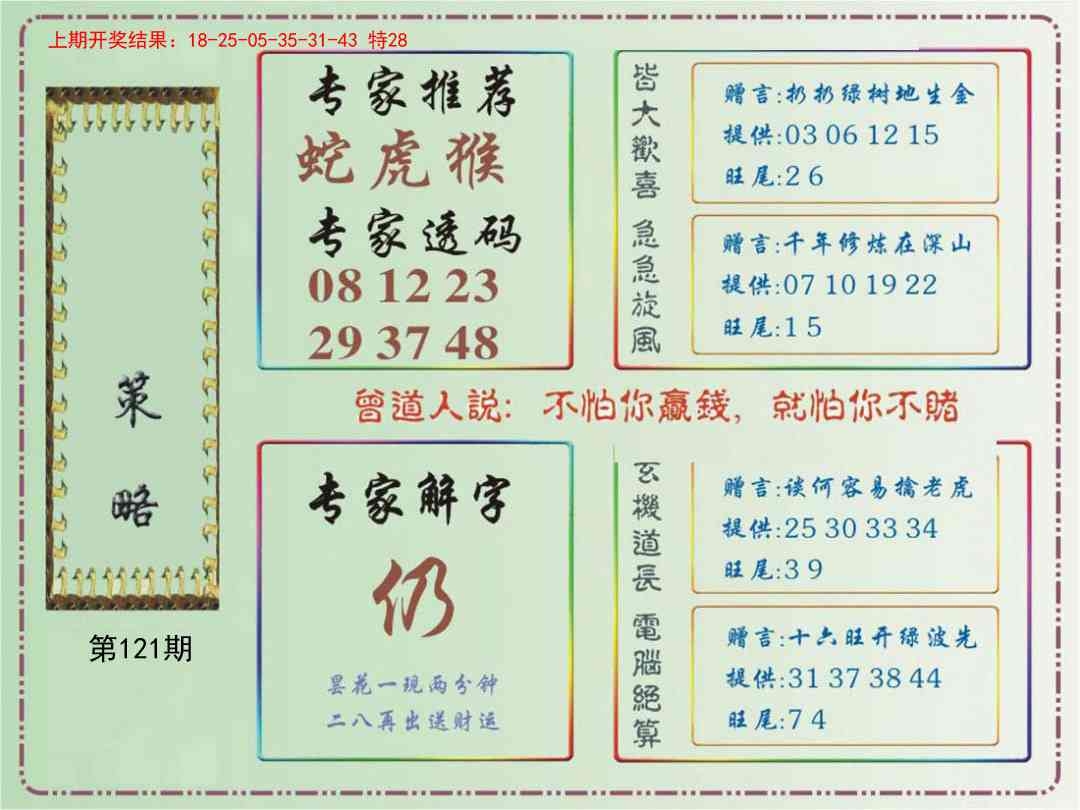 上期开奖结果：18-25-05-35-31-43 特28
策略
第121期
专家推荐
蛇虎猴
专家透码
08 12 23
29 37 48
皆大歡喜
赠言:扔扔绿树地生金
提供:03 06 12 15
旺尾:2 6
急急旋風
赠言:千年修炼在深山
提供:07 10 19 22
旺尾:1 5
曾道人説：不怕你赢錢，就怕你不賭
专家解字
仍
昙花一现两分钟
二八再出送财运
玄機道長
赠言:谈何容易擒老虎
提供:25 30 33 34
旺尾:3 9
電腦絕算
赠言:十六旺开绿波先
提供:31 37 38 44
旺尾:7 4